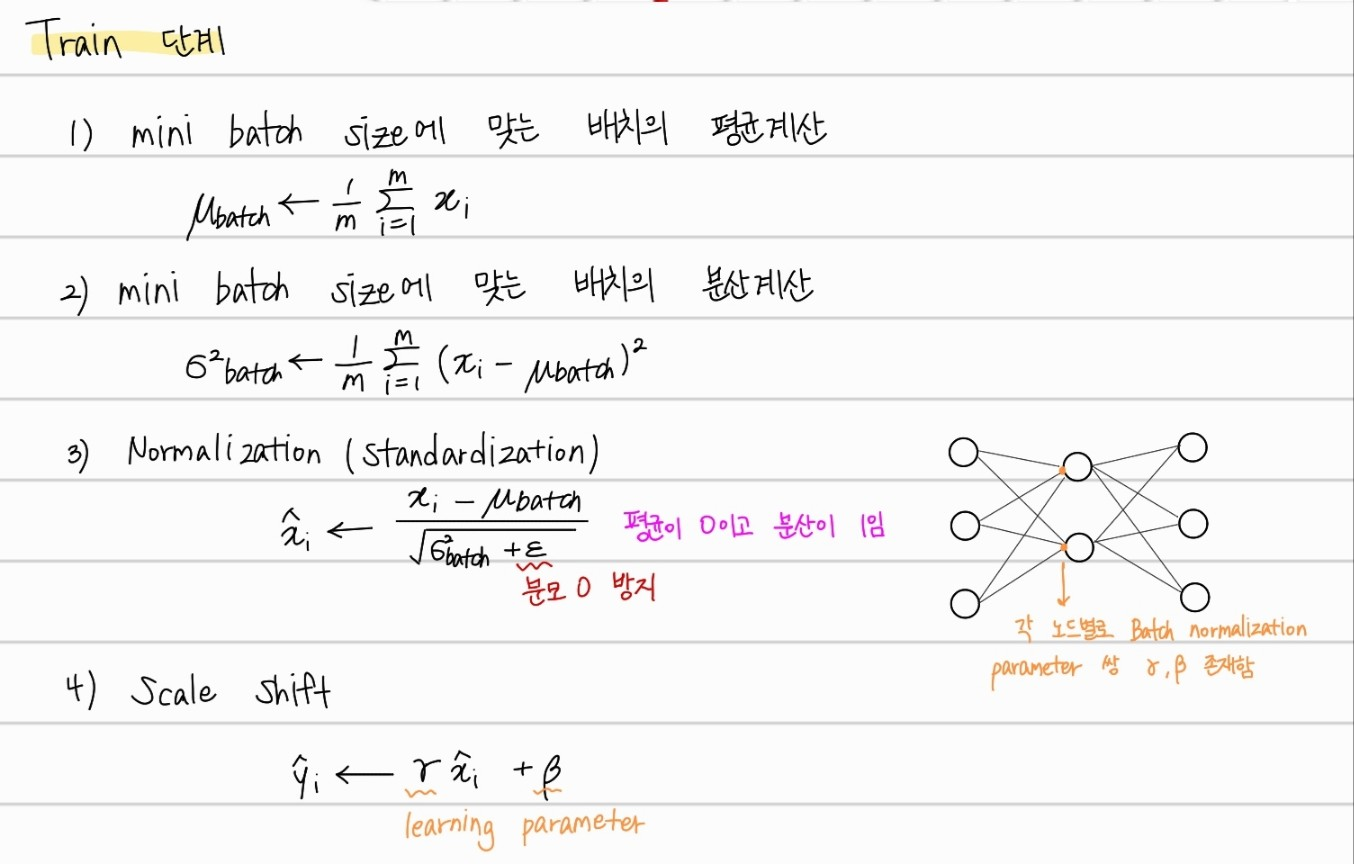 Train 단계
1) mini batch size에 맞는 배치의 평균계산
μbatch ← 1/m Σ_{i=1}^{m} xᵢ
2) mini batch size에 맞는 배치의 분산계산
σ²batch ← 1/m Σ_{i=1}^{m} (xᵢ - μbatch)²
3) Normalization (standardization)
x̂ᵢ ← (xᵢ - μbatch) / √(σ²batch + ε) 평균이 0이고 분산이 1임
분모 0 방지
각 노드별로 Batch normalization
parameter 쌍 γ, β 존재함
4) Scale shift
ŷᵢ ← γ x̂ᵢ + β
learning parameter